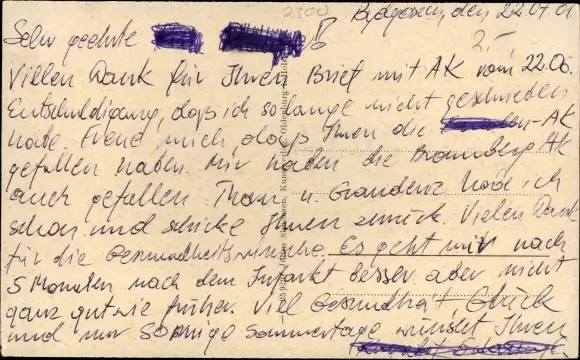 2300
Bydgoszcz, den 22.07.01
2.-
Sehr geehrte
Villen Dank für Ihren Brief mit AK vom 22.06.
Entschuldigung, daß ich so lange nicht geschrieben
habe. Freue mich daß Ihnen die AK
gefallen haben. Mir haben die Bromberg AK
auch gefallen Thorn u. Graudenz habe ich
schon und schicke Ihnen zurück. Vielen Dank
für die Gesundheitswünsche. Es geht mir nach
5 Monaten nach dem Infarkt besser aber nicht
ganz gut wie früher. Viel Gesundheit, Glück
und nur Sonnige Sommertage wünscht Ihnen
Oldenburg